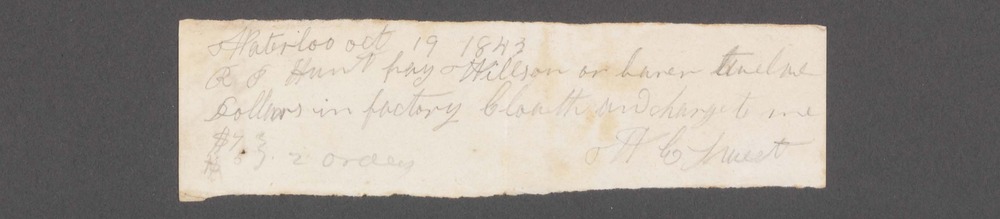 Waterloo oct 19 1843
R P Hunt pay Willson or barer twelve
Dollars in factory Cloath and charge to me
2 orders W C Sweet